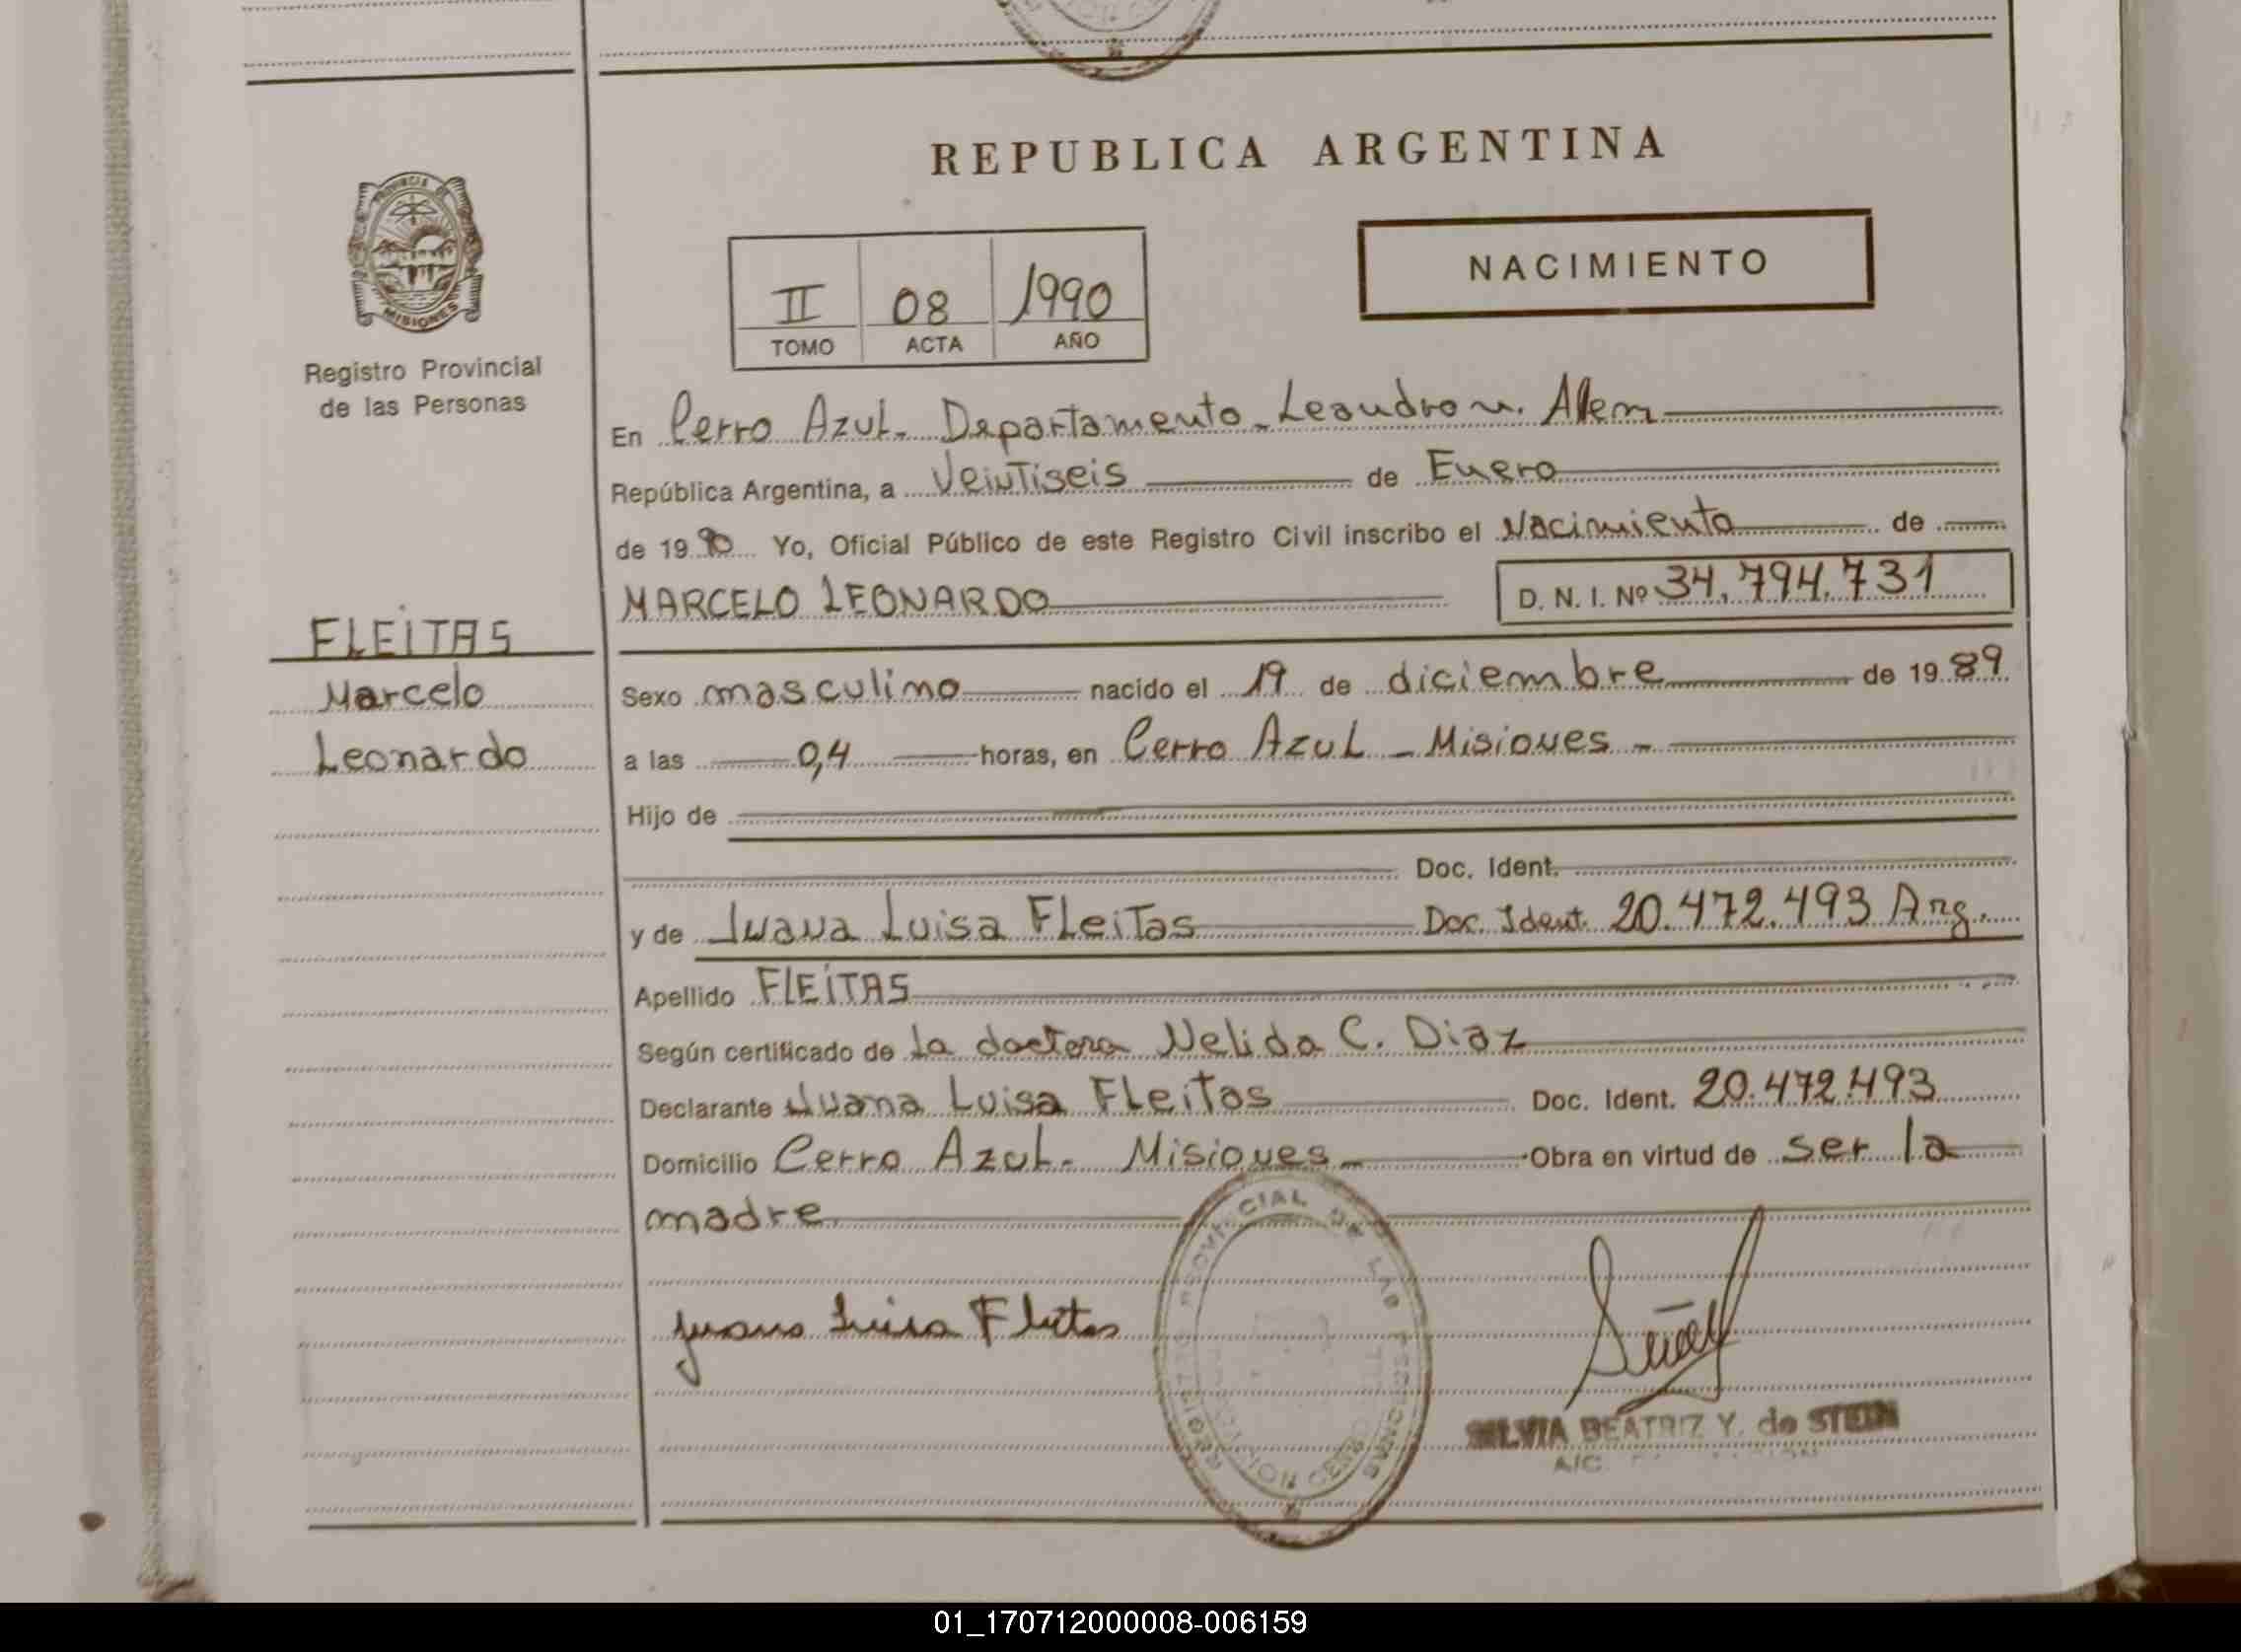 REPUBLICA ARGENTINA
PROVINCIA DE
MISIONES
Registro Provincial
de las Personas
NACIMIENTO
II 08 1990
TOMO ACTA AÑO
En Cerro Azul. Departamento Leandro N. Alem
República Argentina, a Veintiseis de Enero
de 1990 Yo, Oficial Público de este Registro Civil inscribo el Nacimiento de
MARCELO LEONARDO D. N. I. Nº 34.794.731
FLEITAS
Marcelo
Leonardo
Sexo masculino nacido el 19 de diciembre de 1989
a las 0,4 horas, en Cerro Azul - Misiones -
Hijo de
Doc. Ident.
y de Juana Luisa Fleitas Doc. Ident. 20.472.493 Arg.
Apellido FLEITAS
Según certificado de la doctora Nelida C. Diaz
Declarante Juana Luisa Fleitas Doc. Ident. 20.472.493
Domicilio Cerro Azul. Misiones Obra en virtud de ser la
madre
Juana Luisa Fleitas
REGISTRO PROVINCIAL DE LAS PERSONAS
SILVIA BEATRIZ Y. de STEIN
A/C
01_170712000008-006159